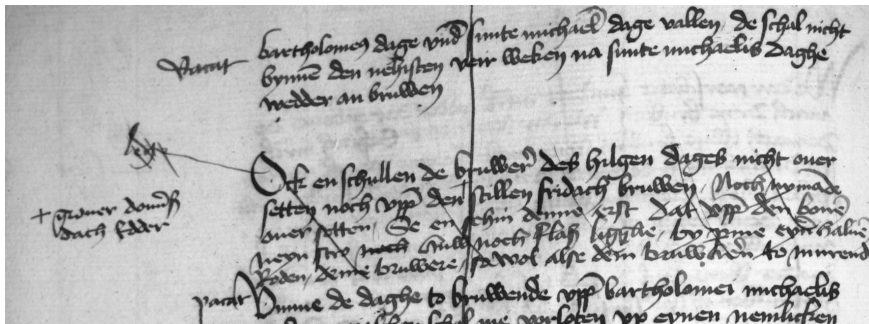 bartholomeus dage vnd sunte michael dage vallen de schal nicht
Vacat bynnen den nehisten veir weken na sunte michaelis daghe
wedder an bruwen
Ock en schullen de bruwer des hilgen dages nicht ouer
setten noch vpp den stillen fridach bruwen Noch nymade
+ groner donerß ouer setten Se en sehin denne erst dat vpp den
dach edder neyn stro noch noch flaß ligghe by
Roden deme bruwere so wol alse dem to murend
vacat Vmme de daghe to bruwende vpp bartholomei michaelis
schal me vorloten vp eynen nemlicken